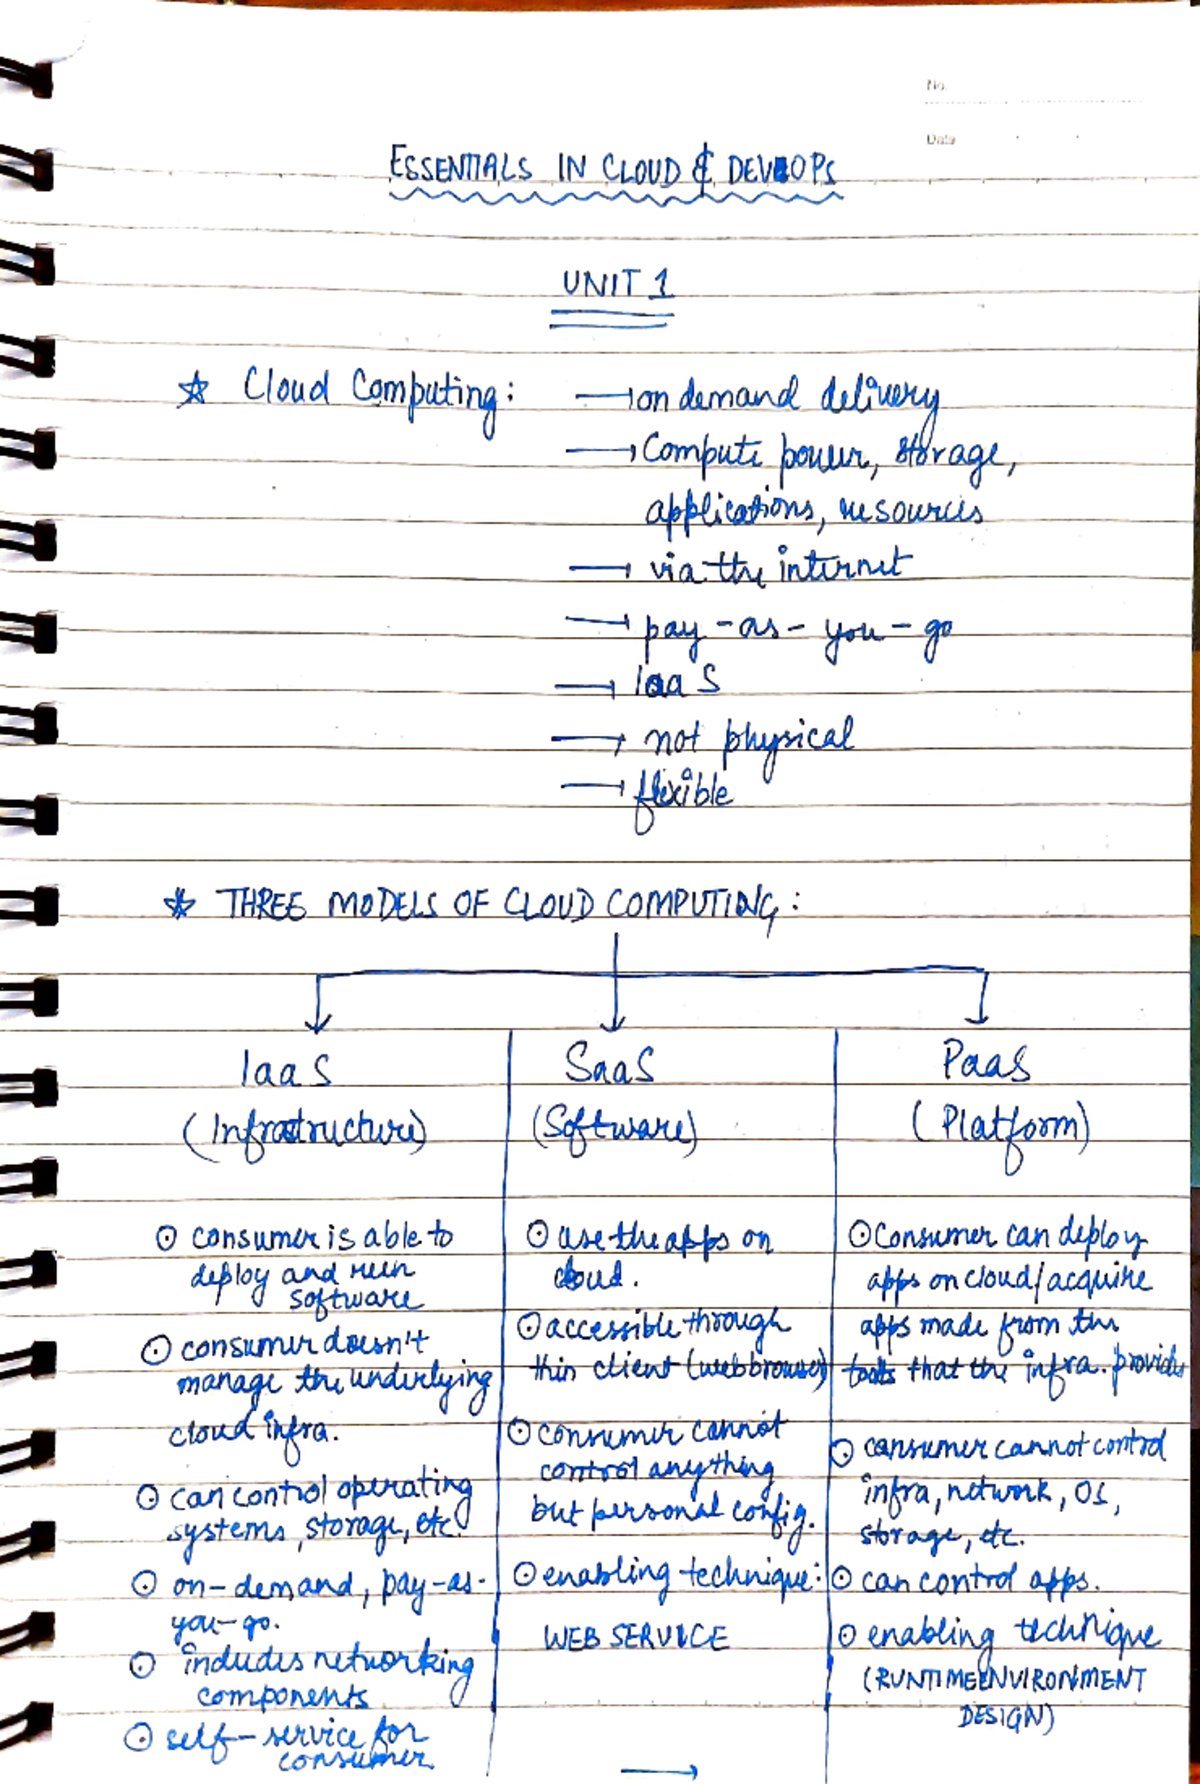 No.
Date
ESSENTIALS IN CLOUD & DEVOPS
UNIT 1
☆ Cloud Computing: → on demand delivery
→ Compute power, storage,
applications, resources
→ via the internet
→ pay-as-you-go
→ IaaS
→ not physical
→ flexible
☆ THREE MODELS OF CLOUD COMPUTING:
IaaS
(Infrastructure)
⊙ consumer is able to
deploy and run
software
⊙ consumer doesn't
manage the underlying
cloud infra.
⊙ can control operating
systems, storage, etc.
⊙ on-demand, pay-as-
you-go.
⊙ includes networking
components
⊙ self-service for
consumer.
SaaS
(Software)
⊙ use the apps on
cloud.
⊙ accessible through
thin client (web browser)
⊙ consumer cannot
control anything
but personal config.
⊙ enabling technique:
WEB SERVICE
PaaS
(Platform)
⊙ Consumer can deploy
apps on cloud/acquire
apps made from the
tools that the infra. provides
⊙ consumer cannot control
infra, network, OS,
storage, etc.
⊙ can control apps.
⊙ enabling technique
(RUNTIME ENVIRONMENT
DESIGN)
→